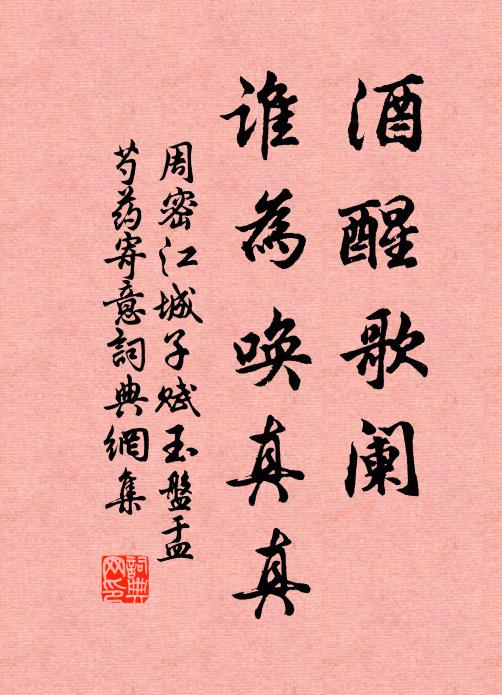 酒醒歌阑
谁為唤真真
周密江城子赋玉盤盂
芍药寄意詞典網集
詞典网印